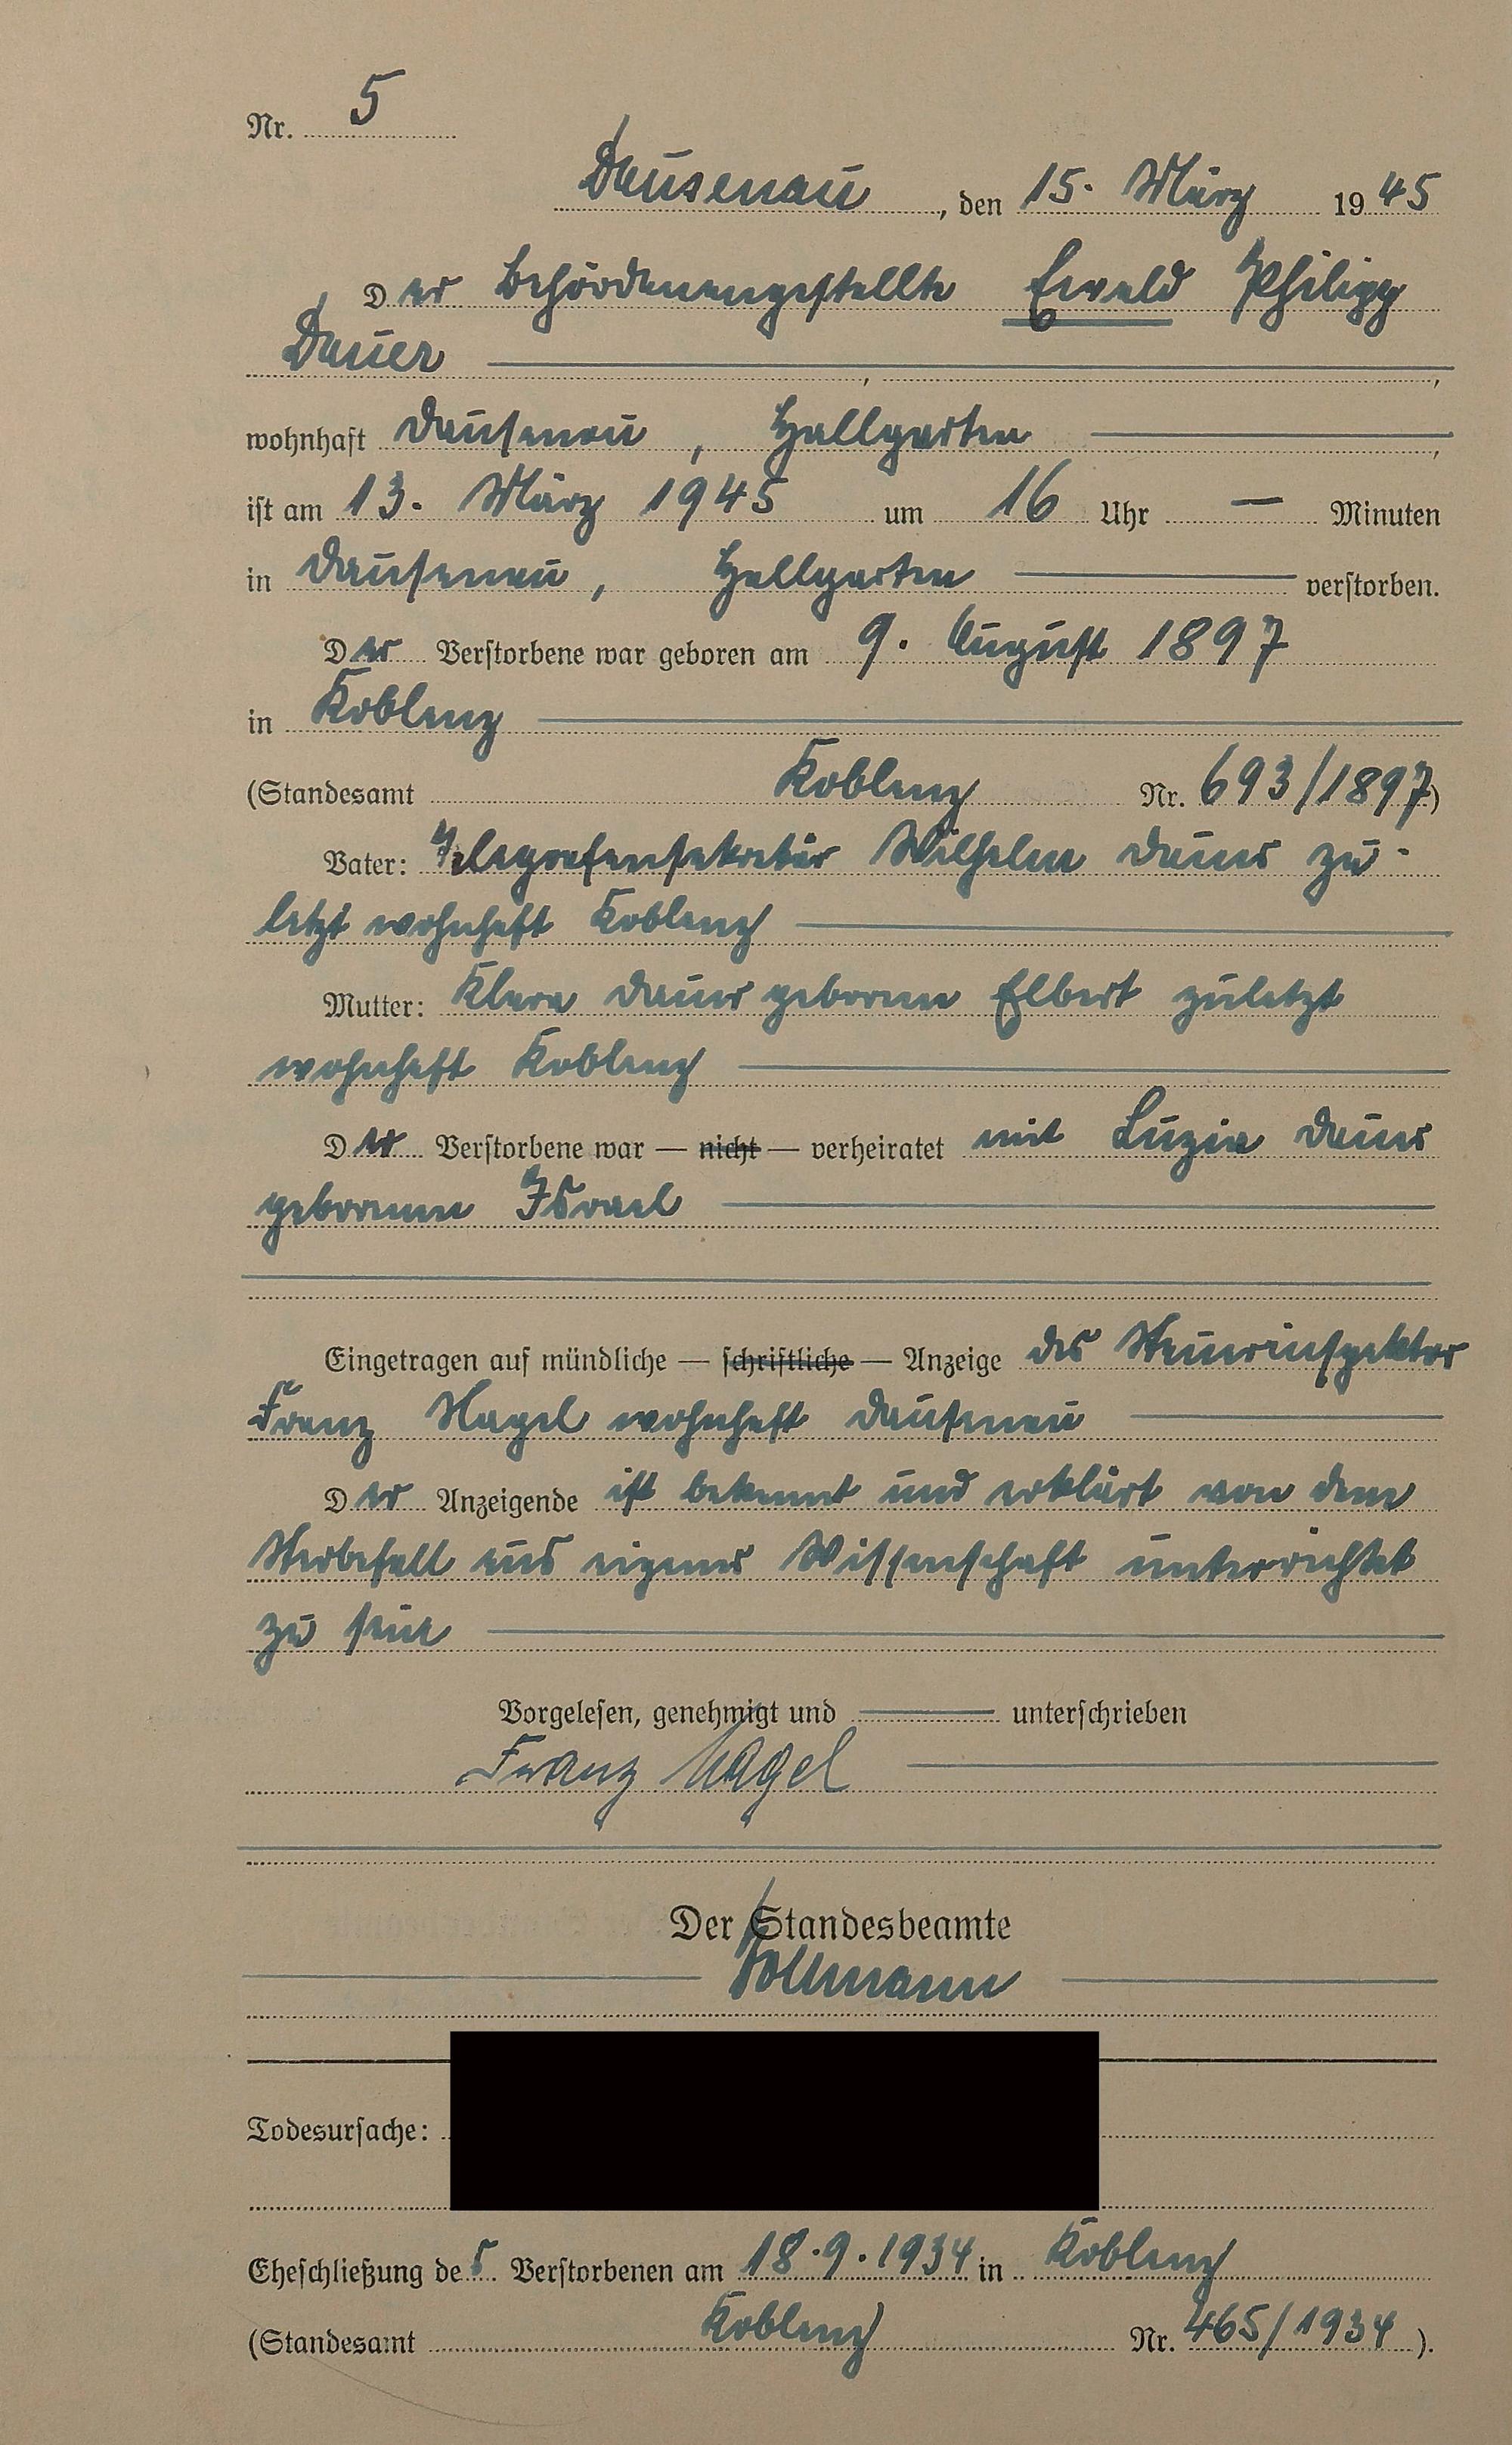 Nr. 5
Dausenau, den 15. März 1945
Der Behördenangestellte Ewald Philipp
Dauer
wohnhaft Dausenau, Hallgarten
ist am 13. März 1945 um 16 Uhr — Minuten
in Dausenau, Hallgarten verstorben.
Der Verstorbene war geboren am 9. August 1897
in Koblenz
(Standesamt Koblenz Nr. 693/1897)
Vater: Telegrafensekretär Wilhelm Dauer zu-
letzt wohnhaft Koblenz
Mutter: Klara Dauer geborene Elbert zuletzt
wohnhaft Koblenz
Der Verstorbene war — nicht — verheiratet mit Luzia Dauer
geborenen Israel
Eingetragen auf mündliche — schriftliche — Anzeige des Steuerinspektor
Franz Nagel wohnhaft Dausenau
Der Anzeigende ist bekannt und erklärt von dem
Sterbefall aus eigener Wissenschaft unterrichtet
zu sein
Vorgelesen, genehmigt und unterschrieben
Franz Nagel
Der Standesbeamte
Todesursache:
Eheschließung des Verstorbenen am 18.9.1934 in Koblenz
(Standesamt Koblenz Nr. 465/1934).